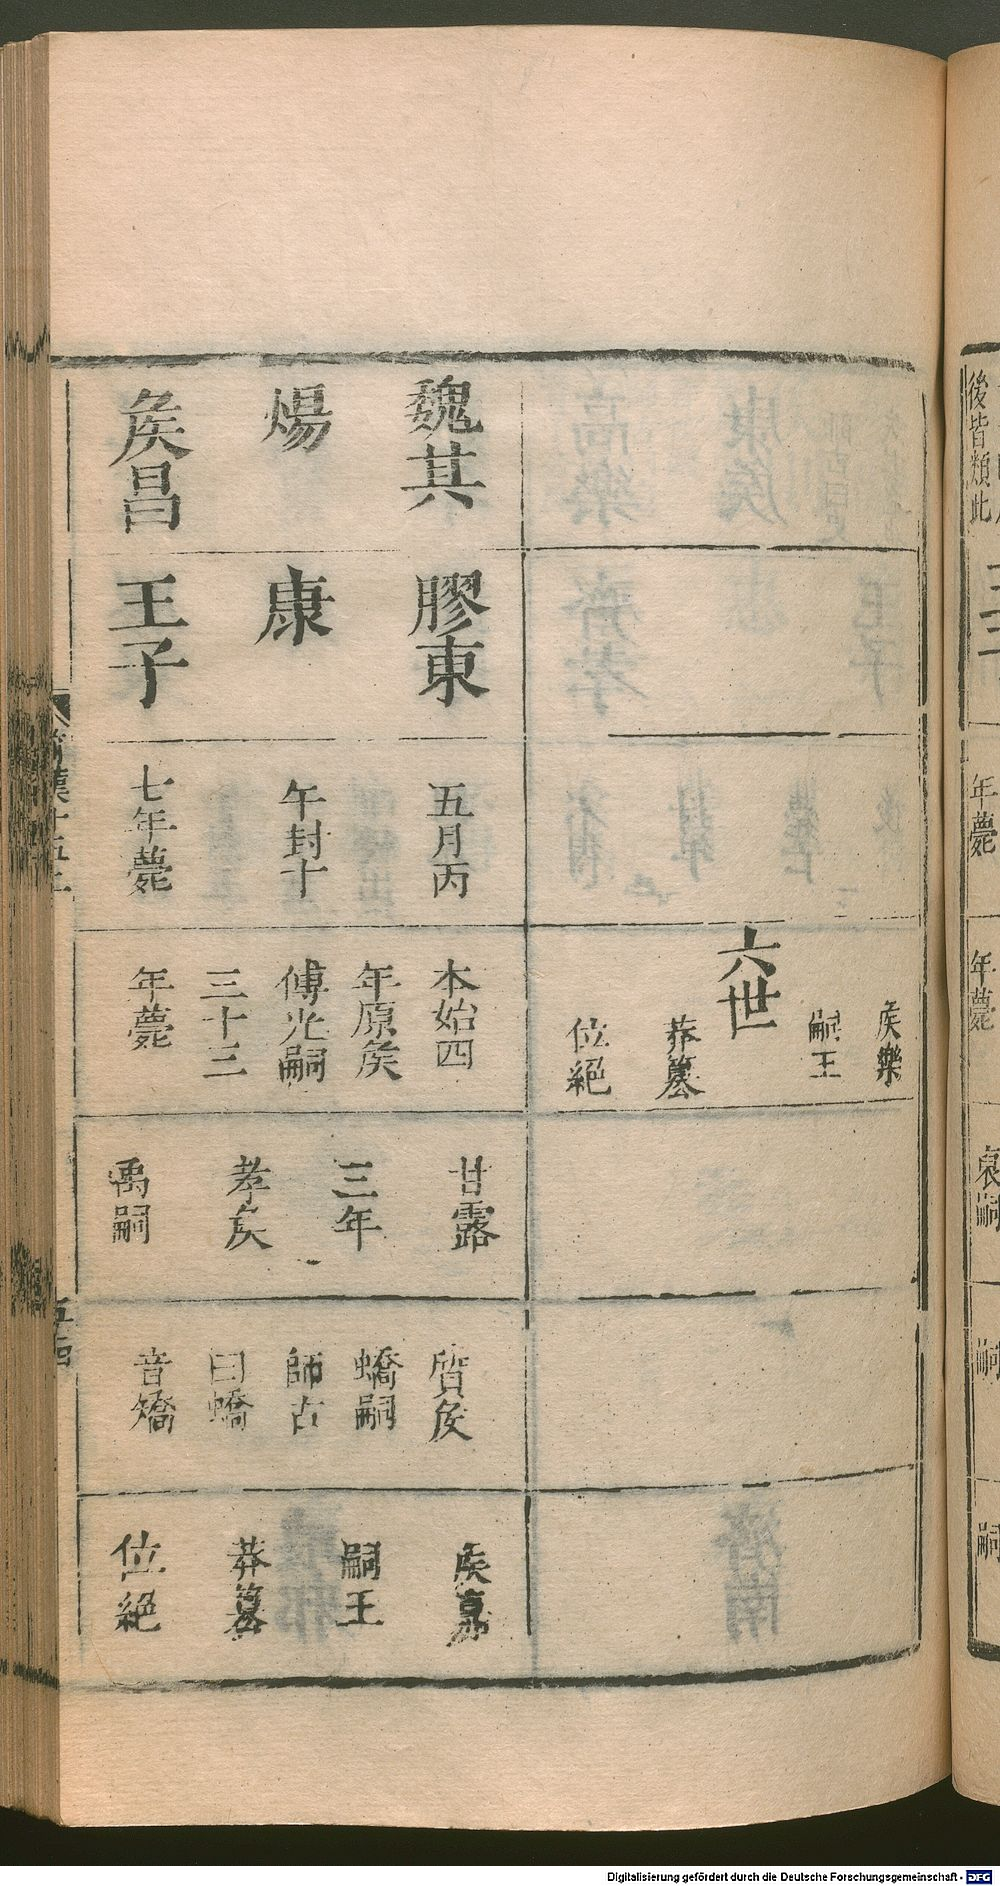 六世
矦樂
嗣王
莽簒
位絕
魏其
煬
矦昌
膠東
康
王子
五月丙
午封十
七年薨
本始四
年原矦
傅光嗣
三十三
年薨
甘露
三年
孝矦
禹嗣
質矦
蟜嗣
師古
曰蟜
音矯
矦嘉
嗣王
莽簒
位絕
後皆類此
年薨
年薨
嗣
嗣
Digitalisierung gefördert durch die Deutsche Forschungsgemeinschaft - DFG